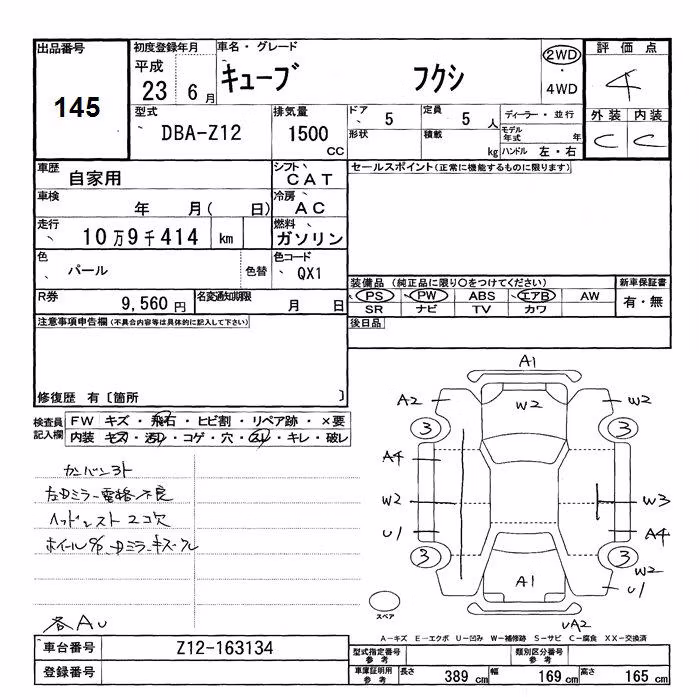 出品番号
145
初度登録年月
平成
23 6月
車名・グレード
キューブ フクシ
2WD
・
4WD
評価点
4
型式
DBA-Z12
排気量
1500
CC
ドア
5
定員
5人
形状
積載
kg
ディーラー・並行
モデル年式 年
ハンドル 左・右
外装 内装
C C
車歴
自家用
シフト
CAT
セールスポイント(正常に機能するものに限ります)
車検
年 月( 日)
冷房
AC
走行
10万9千414 km
燃料
ガソリン
色
パール
色替
色コード
QX1
装備品(純正品に限り○をつけてください)
新車保証書
PS PW ABS エアB AW
SR ナビ TV カワ
有・無
R券
9,560円
名変通知期限
月 日
後日品
注意事項申告欄(不具合内容等は具体的に記入して下さい)
修復歴 有〔箇所 〕
検査員記入欄
FW キズ・飛石・ヒビ割・リペア跡・×要
内装 キズ・汚レ・コゲ・穴・スレ・キレ・破レ
カンバン3ト
左ロミラー電格不良
ヘッドレスト 2コ欠
各AU
A1
A2
W2
W2
3
3
A4
W2
W3
U1
A4
3
3
W2
A1
U1
UA2
スペア
A-キズ E-エクボ U-凹み W-補修跡 S-サビ C-腐食 XX-交換済
車台番号
Z12-163134
登録番号
型式指定番号
参考
類別区分番号
参考
車庫証明用
参考
長さ 389 cm 幅 169 cm 高さ 165 cm